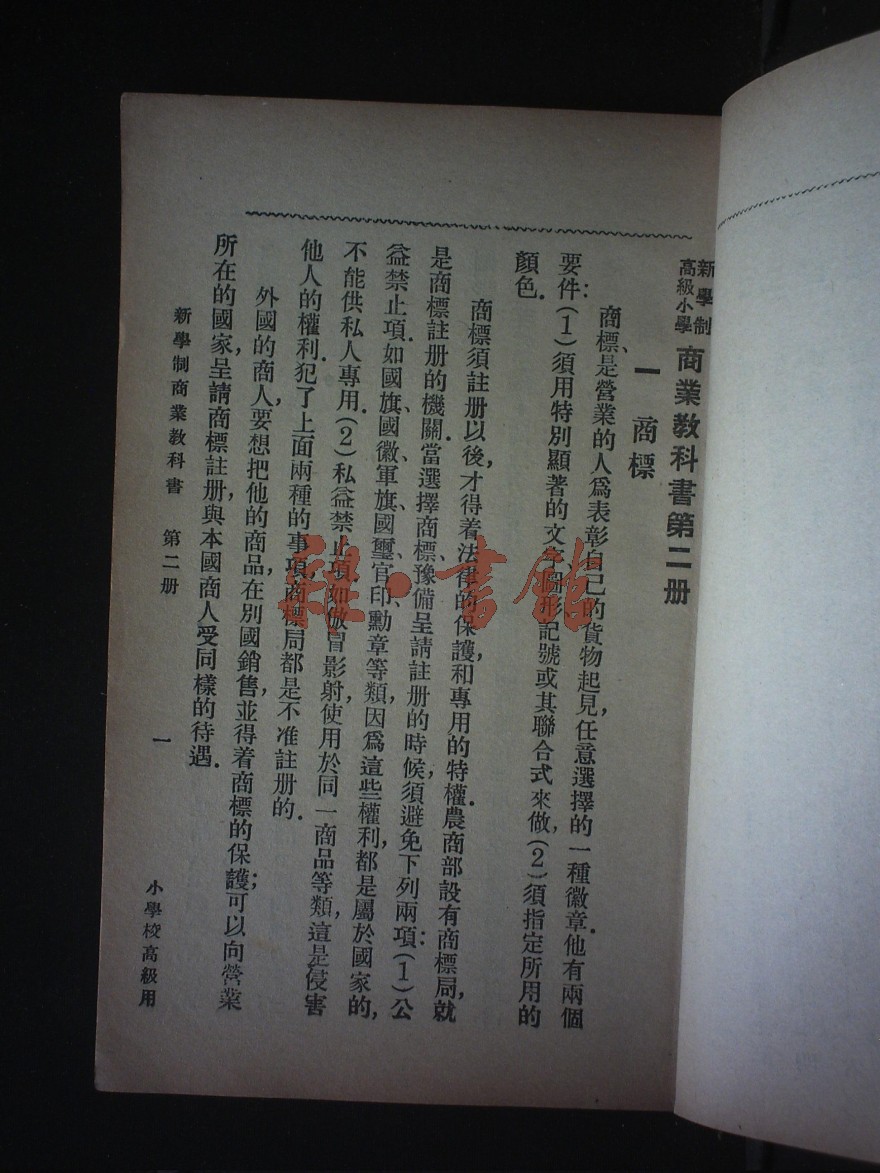 新學制
高級小學
商業教科書第二册
一 商標
商標、是營業的人爲表彰自己的貨物起見，任意選擇的一種徽章．他有兩個
要件：(1)須用特別顯著的文字、圖形、記號或其聯合式來做，(2)須指定所用的
顏色．
商標須註册以後，才得着法律的保護和專用的特權．農商部設有商標局，就
是商標註册的機關．當選擇商標、豫備呈請註册的時候，須避免下列兩項：(1)公
益禁止項．如國旗、國徽、軍旗、國璽、官印、勳章等類，因爲這些權利，都是屬於國家的，
不能供私人專用．(2)私益禁止項．如倣冒影射，使用於同一商品等類，這是侵害
他人的權利．犯了上面兩種的事項，商標局都是不准註册的．
外國的商人，要想把他的商品，在別國銷售，並得着商標的保護；可以向營業
所在的國家，呈請商標註册，與本國商人，受同樣的待遇．
新學制商業教科書 第二册 一 小學校高級用
雜·書館